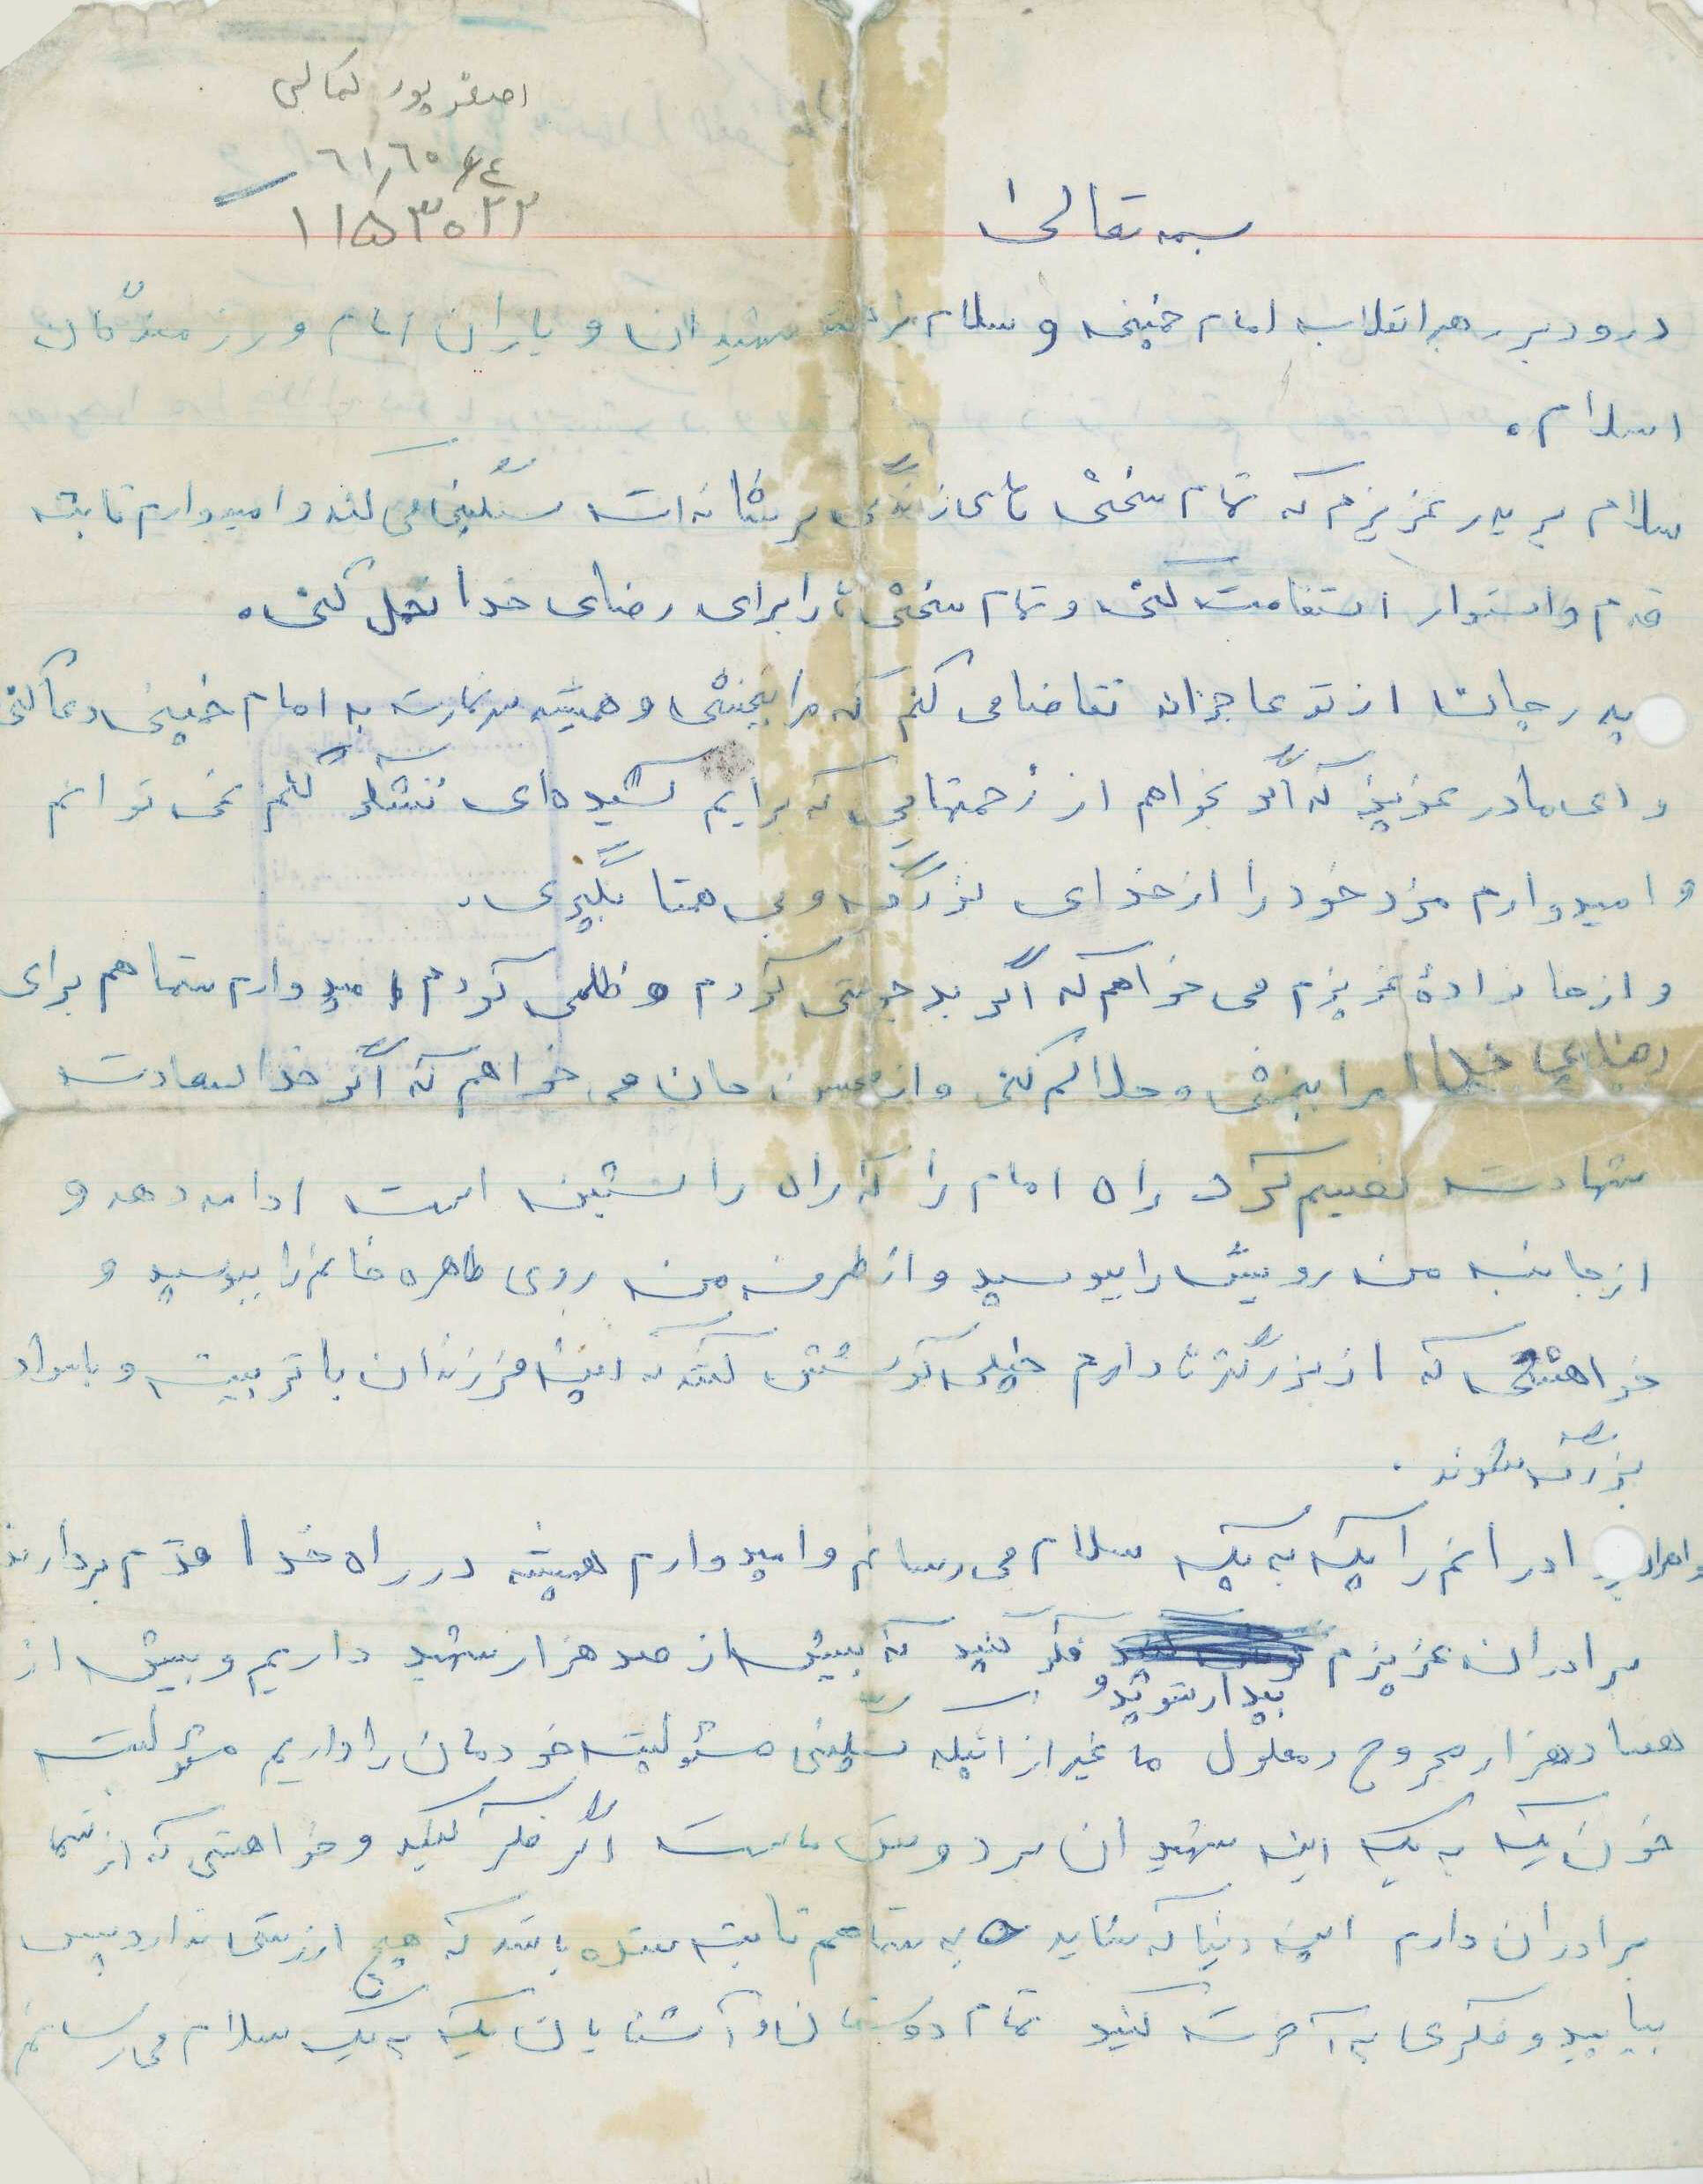 اصغر پور کمالی
۱۱۵۳۰۲۲
بسمه تعالی
درود بر رهبر انقلاب امام خمینی و سلام بر شهیدان و یاران امام و رزمندگان
اسلام.
سلام بر پدر عزیزم که تمام سختی های زندگی بر شانه ات سنگینی می کند و امیدوارم ثابت
قدم و استوار استقامت کنی و تمام سختی ها را برای رضای خدا تحمل کنی.
پدر جان از تو عاجزانه تقاضا می کنم که مرا ببخشی و همیشه سر نمازت به امام خمینی دعا کنی
و ای مادر عزیزم که اگر بخواهم از زحمتهایی که برایم کشیده ای تشکر کنم نمی توانم
و امیدوارم مزد خود را از خدای بزرگ و بی همتا بگیری.
و از خانواده عزیزم می خواهم که اگر بد جویی کردم و ظلمی کردم امیدوارم شما هم برای
رضای خدا مرا ببخشی و حلالم کنی و از جان می خواهم که اگر خدا سعادت
شهادت نصیبم کرد راه امام را که راه راستین است ادامه دهد و
از جانب من رویش را ببوسید و از طرف من روی طاهره خانم را ببوسید و
خواهشی که از بزرگترها دارم خیلی کوشش کنند که این فرزندان با تربیت و باسواد
بزرگ شوند.
برادرانم را یک به یک سلام می رسانم و امیدوارم همیشه در راه خدا قدم بردارند
برادران عزیزم بیدار شوید و فکر کنید که بیش از صد هزار شهید داریم و بیش از
هزار مجروح و معلول ما غیر از اینکه سنگینی مسئولیت خودمان را داریم مسئولیت
خون یک به یک این شهیدان بر دوش ماست اگر فکر کنید و خواهشی که از شما
برادران دارم این دنیا که شاید به شما هم ثابت شده باشد که هیچ ارزشی ندارد پس
بیایید و فکری به آخرت کنید تمام دوستان و آشنایان یک به یک سلام می رسانم